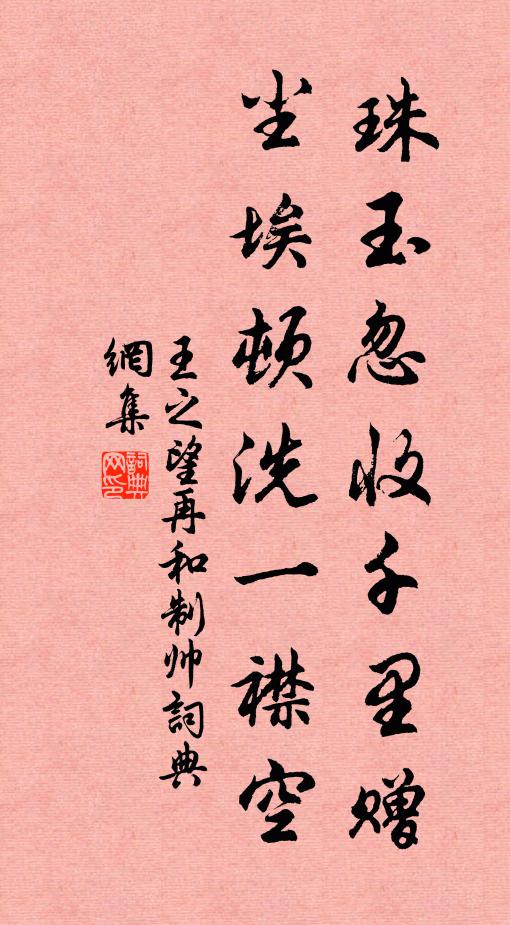 珠玉忽收千里赠
尘埃顿洗一襟空
王之望再和制帅詞典
網集
詞典网印